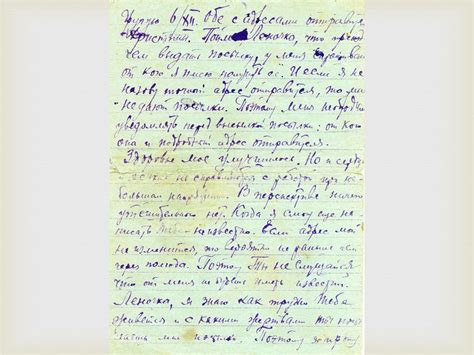 другую 6/XII. Обе с адресами отправителя
Пойми, Леночка, что прежде
чем выдать посылку, у меня спрашивают
от кого я имею получить её. И если я не
назову точный адрес отправителя, то мне
не дают посылки. Поэтому меня необходимо
уведомлять перед высылкой посылки: от кого
она и подробный адрес отправителя.
Здоровье мое улучшилось. Но и сейчас
не справляется с работой при не-
большом напряжении. В перспективе ничего
утешительного нет. Когда я смогу еще на-
писать тебе неизвестно. Если адрес мой
не изменится, то вероятно не раньше чем
через полгода. Поэтому Ты не смущайся
что от меня не будешь иметь известий.
Леночка, я знаю как трудно Тебе
живется и с какими жертвами ты
мне посылки. Поэтому я прошу